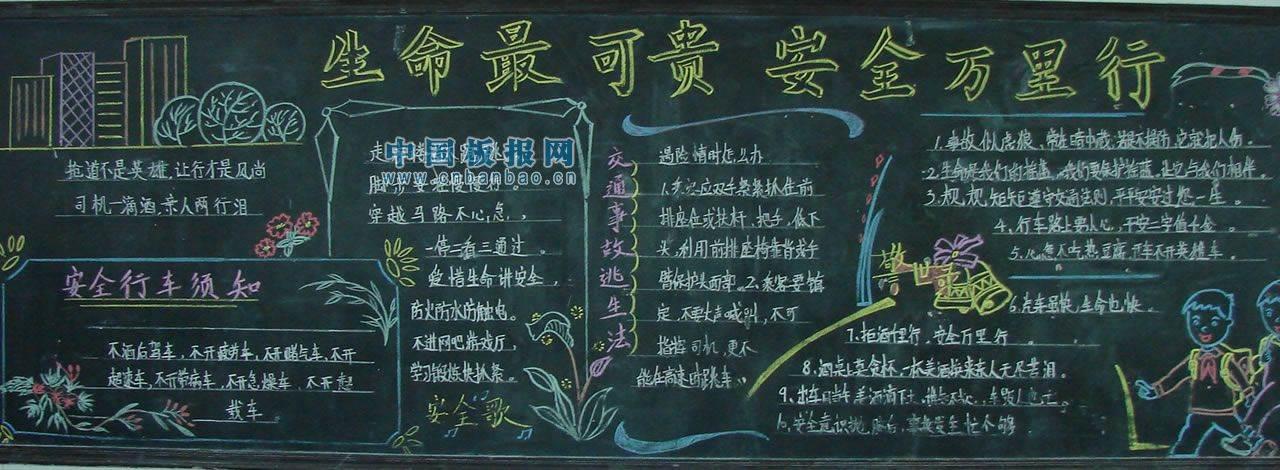 生命最可贵 安全万里行
抢道不是英雄,让行才是风尚
司机一滴酒,亲人两行泪
安全行车须知
不酒后驾车,不开疲劳车,不开赌气车,不开
超速车,不开带病车,不开急躁车,不开超
载车
中国板报网
www.cnbanbao.cn
走
脚步要
穿越马路不心急,
一停二看三通过。
爱惜生命讲安全,
防火防水防触电。
不进网吧游戏厅,
学习锻炼
安全歌
交通事故逃生法
遇险情时怎么办
1.应双手紧紧抓住前
排座位或扶杆、把手,低下
头,利用前排座椅靠背或手
臂保护头面部。2.乘客要镇
定,不要大声喊叫,不可
指挥司机,更不
能在高速时跳车。
警世
1.事故似虎狼,常在暗中藏,若是不提防,它就把人伤。
2.生命是我们的摇篮,我们要保护摇篮,让它与我们相伴。
3.规规矩矩遵守交通法则,平平安安过一生。
4.行车路上要小心,平安二字值千金。
5.心急不吃热豆腐,开车不开英雄车。
6.汽车虽快,生命也快。
7.拒酒千里行,安全万里行。
8.酒桌上莫贪杯,一杯美酒换来亲人无尽苦泪。
9.出车当
10.安全意识